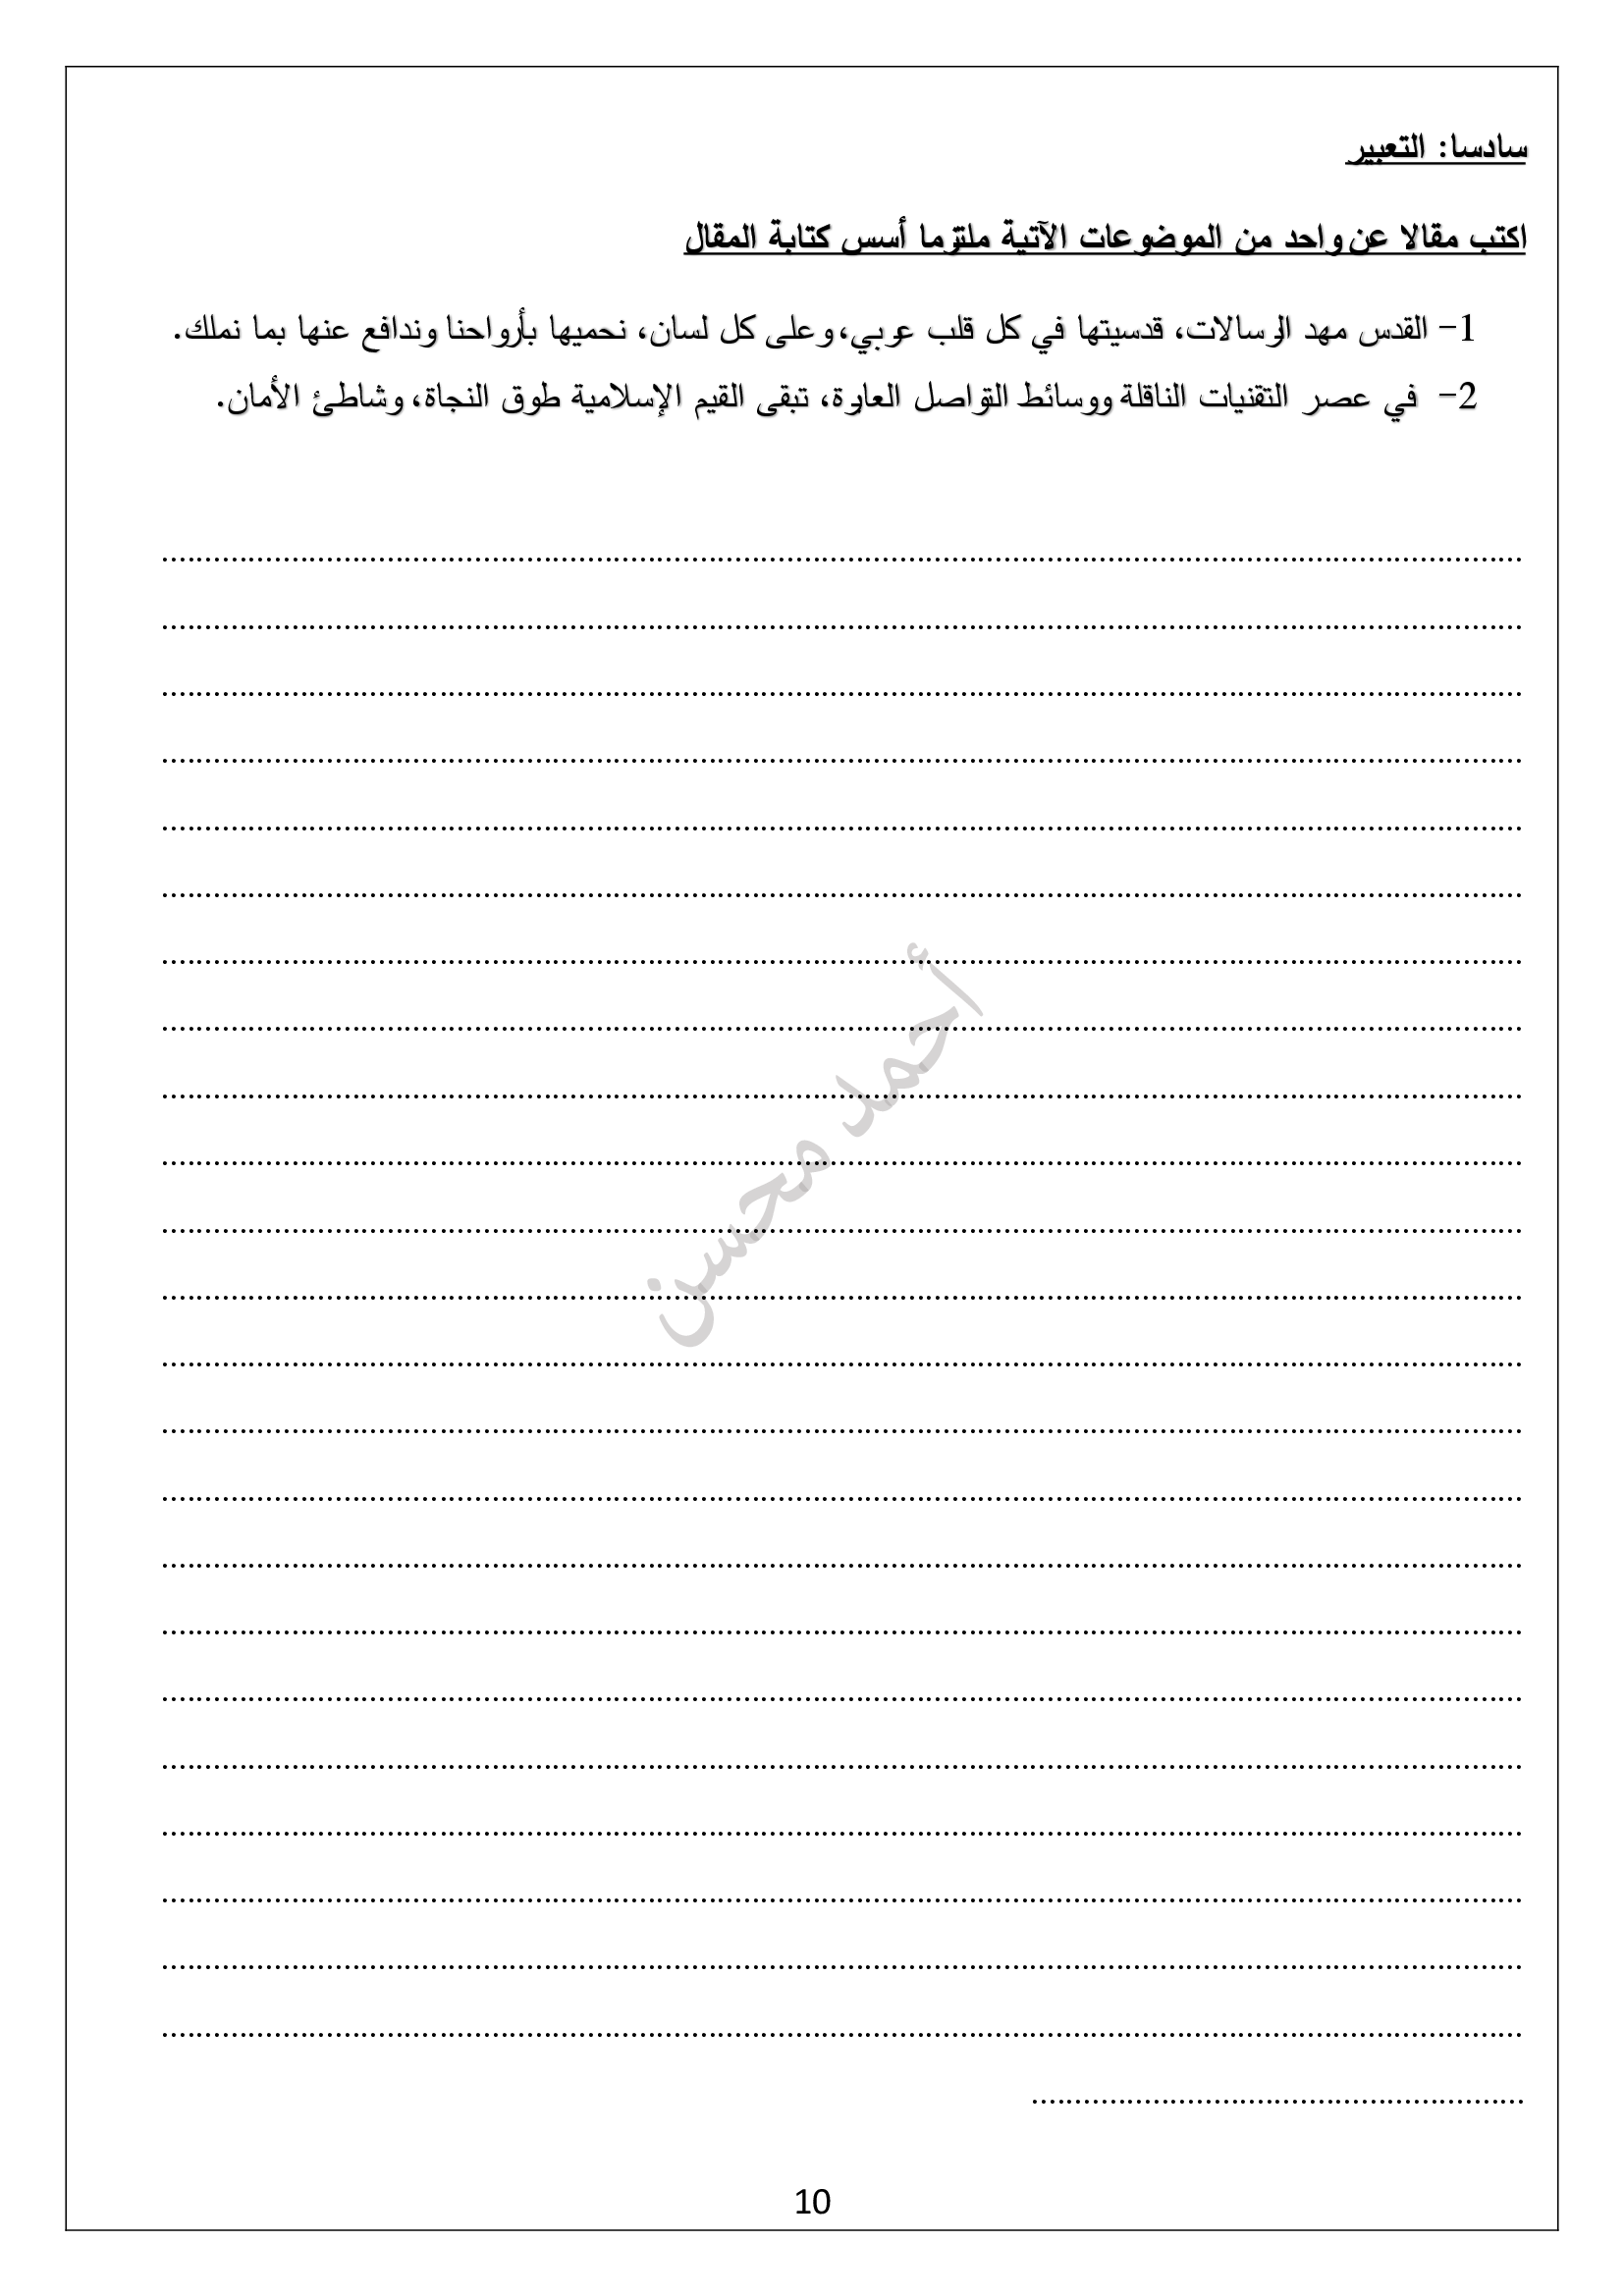 سادسا: التعبير
اكتب مقالا عن واحد من الموضوعات الآتية ملتزما أسس كتابة المقال
1- القدس مهد الرسالات، قدسيتها في كل قلب عربي، وعلى كل لسان، نحميها بأرواحنا وندافع عنها بما نملك.
2- في عصر التقنيات الناقلة ووسائط التواصل العابرة، تبقى القيم الإسلامية طوق النجاة، وشاطئ الأمان.
أحمد محسن
10